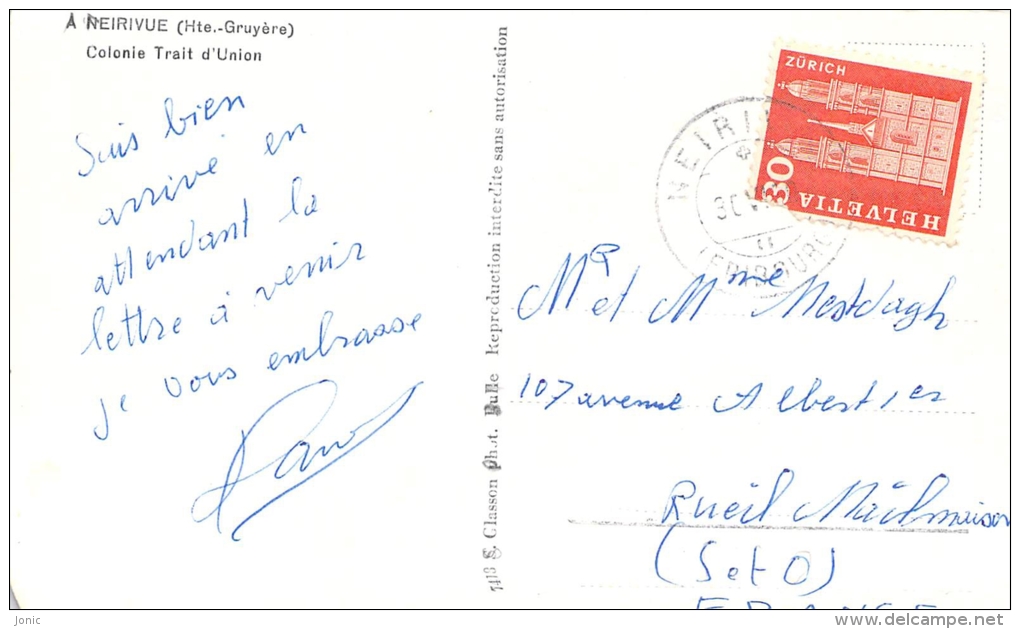 A NEIRIVUE (Hte.-Gruyère)
Colonie Trait d'Union
Suis bien
arrivé en
attendant la
lettre à venir
je vous embrasse
7413 S. Glasson Phot. Bulle Reproduction interdite sans autorisation
ZÜRICH
30
HELVETIA
NEIRI
(FRIBOURG
Mr et Mme Mestdagh
107 avenue Albert 1er
Rueil Malmaison
(S et O)
FRANCE
Jonic
www.delcampe.net